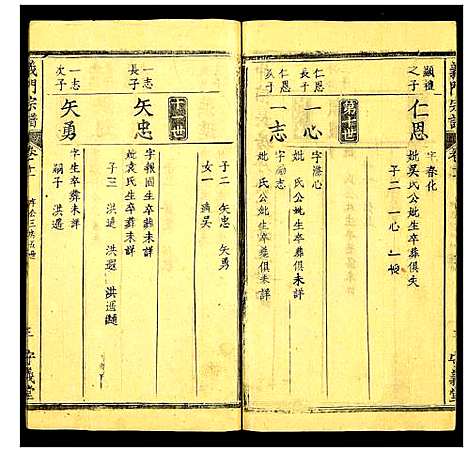 義門宗譜
顯禮之子
仁恩
字春化
妣吳氏公妣生卒葬俱失
子二 一心 一志
仁恩長子
一心
字滌心
妣 氏公妣生卒葬俱未詳
仁恩次子
一志
字勵志
妣 氏公妣生卒葬俱未詳
子二 矢忠 矢勇
女一 適吳
一志長子
矢忠
字報國生卒葬未詳
妣袁氏生卒葬未詳
子三 洪通 洪遐 洪遥
一志次子
矢勇
字 生卒葬未詳
嗣子 洪遐
義門宗譜
三 守義堂